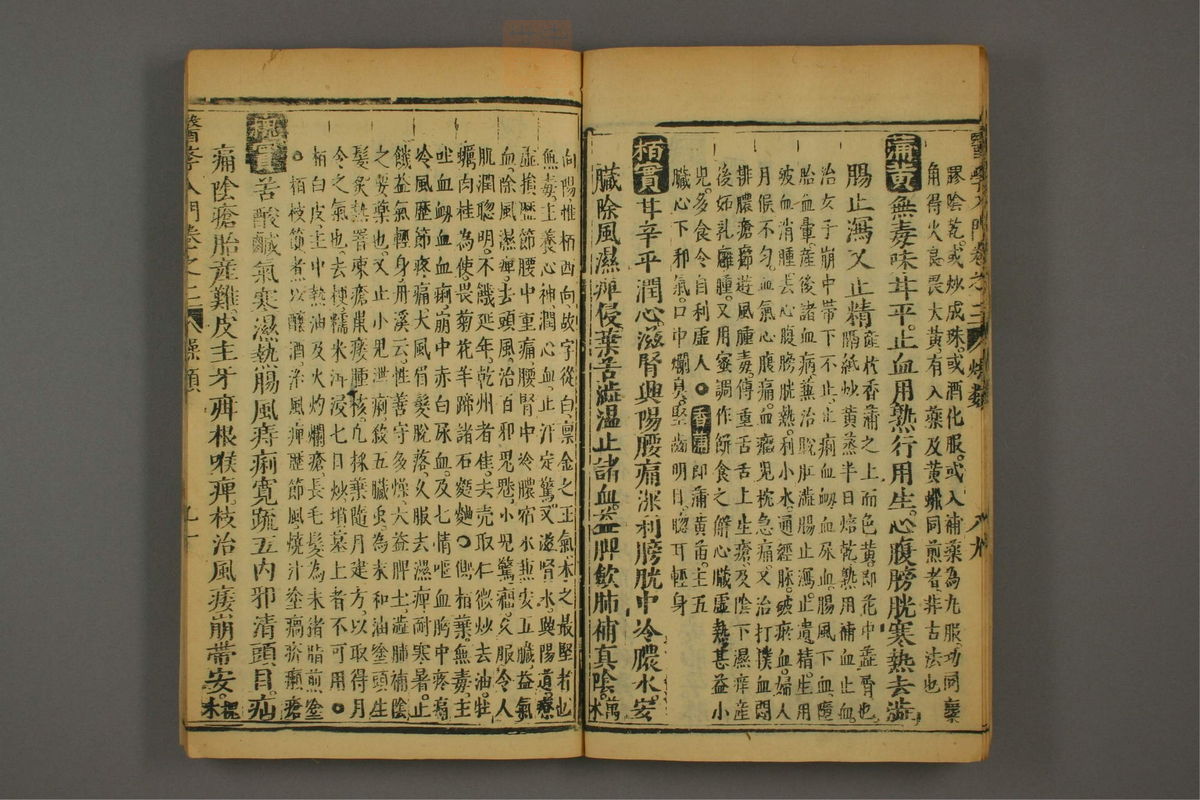 膠陰乾或炒成珠或酒化服或入補藥為丸服功同麋
角得火良畏大黃有入藥及黃蠟同煎者非古法也
蒲黃無毒味甘平止血用熟行用生心腹膀胱寒熱去澁
腸止瀉又止精
產枕香蒲之上而色黃即花中蕊屑也
隔紙炒黃蒸半日焙乾熟用補血止血
治女子崩中帶下不止止痢血衂血尿血腸風下血墮
胎血暈產後諸血病兼治脫肛澁腸止瀉止遺精生用
破血消腫去心腹膀胱熱利小水通經脉破瘀血婦人
月候不勻血氣心腹痛血癥兒枕急痛又治打撲血悶
排膿瘡癤遊風腫毒傳重舌舌上生瘡及陰下濕痒產
後妬乳癰腫又用蜜調作餅食之解心臟虛熱甚益小
兒多食令自利虛人○香蒲即蒲黃苗主五
臟心下邪氣口中爛臭堅齒明目聰耳輕身
栢實甘辛平潤心滋腎興陽腰痛渫利膀胱中冷膿水安
臟除風濕痺侵葉苦澁溫止諸血益脾斂肺補真陰
萬木
向陽惟栢西向故字從白稟金之正氣木之最堅者也
無毒主養心神潤心血止汗定驚又滋腎水興陽道療
虛損腰中重痛腰腎中冷膿宿水兼安五臟益氣
血除風濕痺去頭風治百邪鬼魅小兒驚癇久服令人
肌潤聰明不饑延年乾州者佳去壳取仁微炒去油牡
蠣肉桂為使畏菊花羊蹄諸石麵麯○側栢葉無毒主
吐血衂血血痢崩中赤白尿血及七情嘔血胸中疼痛
冷風歷節疼痛大風眉髮脫落久服去濕痺耐寒暑止
饑益氣輕身丹溪云性善守多燥大益脾土澁肺補陰
之要藥也又止小兒泄痢殺五臟虫為末和油塗頭生
髮炙熱署凍瘡鼠瘻腫核凡採葉隨月建方以取得月
令之氣也去梗糯米泔浸七日炒塚墓上者不可用○
栢白皮主中熱油及火灼爛瘡長毛髮為末猪脂煎塗
○栢枝節煮以釀酒滌風痺歷節風燒汁塗瘑疥癩瘡
槐實苦酸鹹氣寒濕熱腸風痔痢寬疏五內邪清頭目疝
痛陰瘡胎產難皮主牙疼根喉痺枝治風痿崩帶安
槐木
醫學入門卷之二
九十